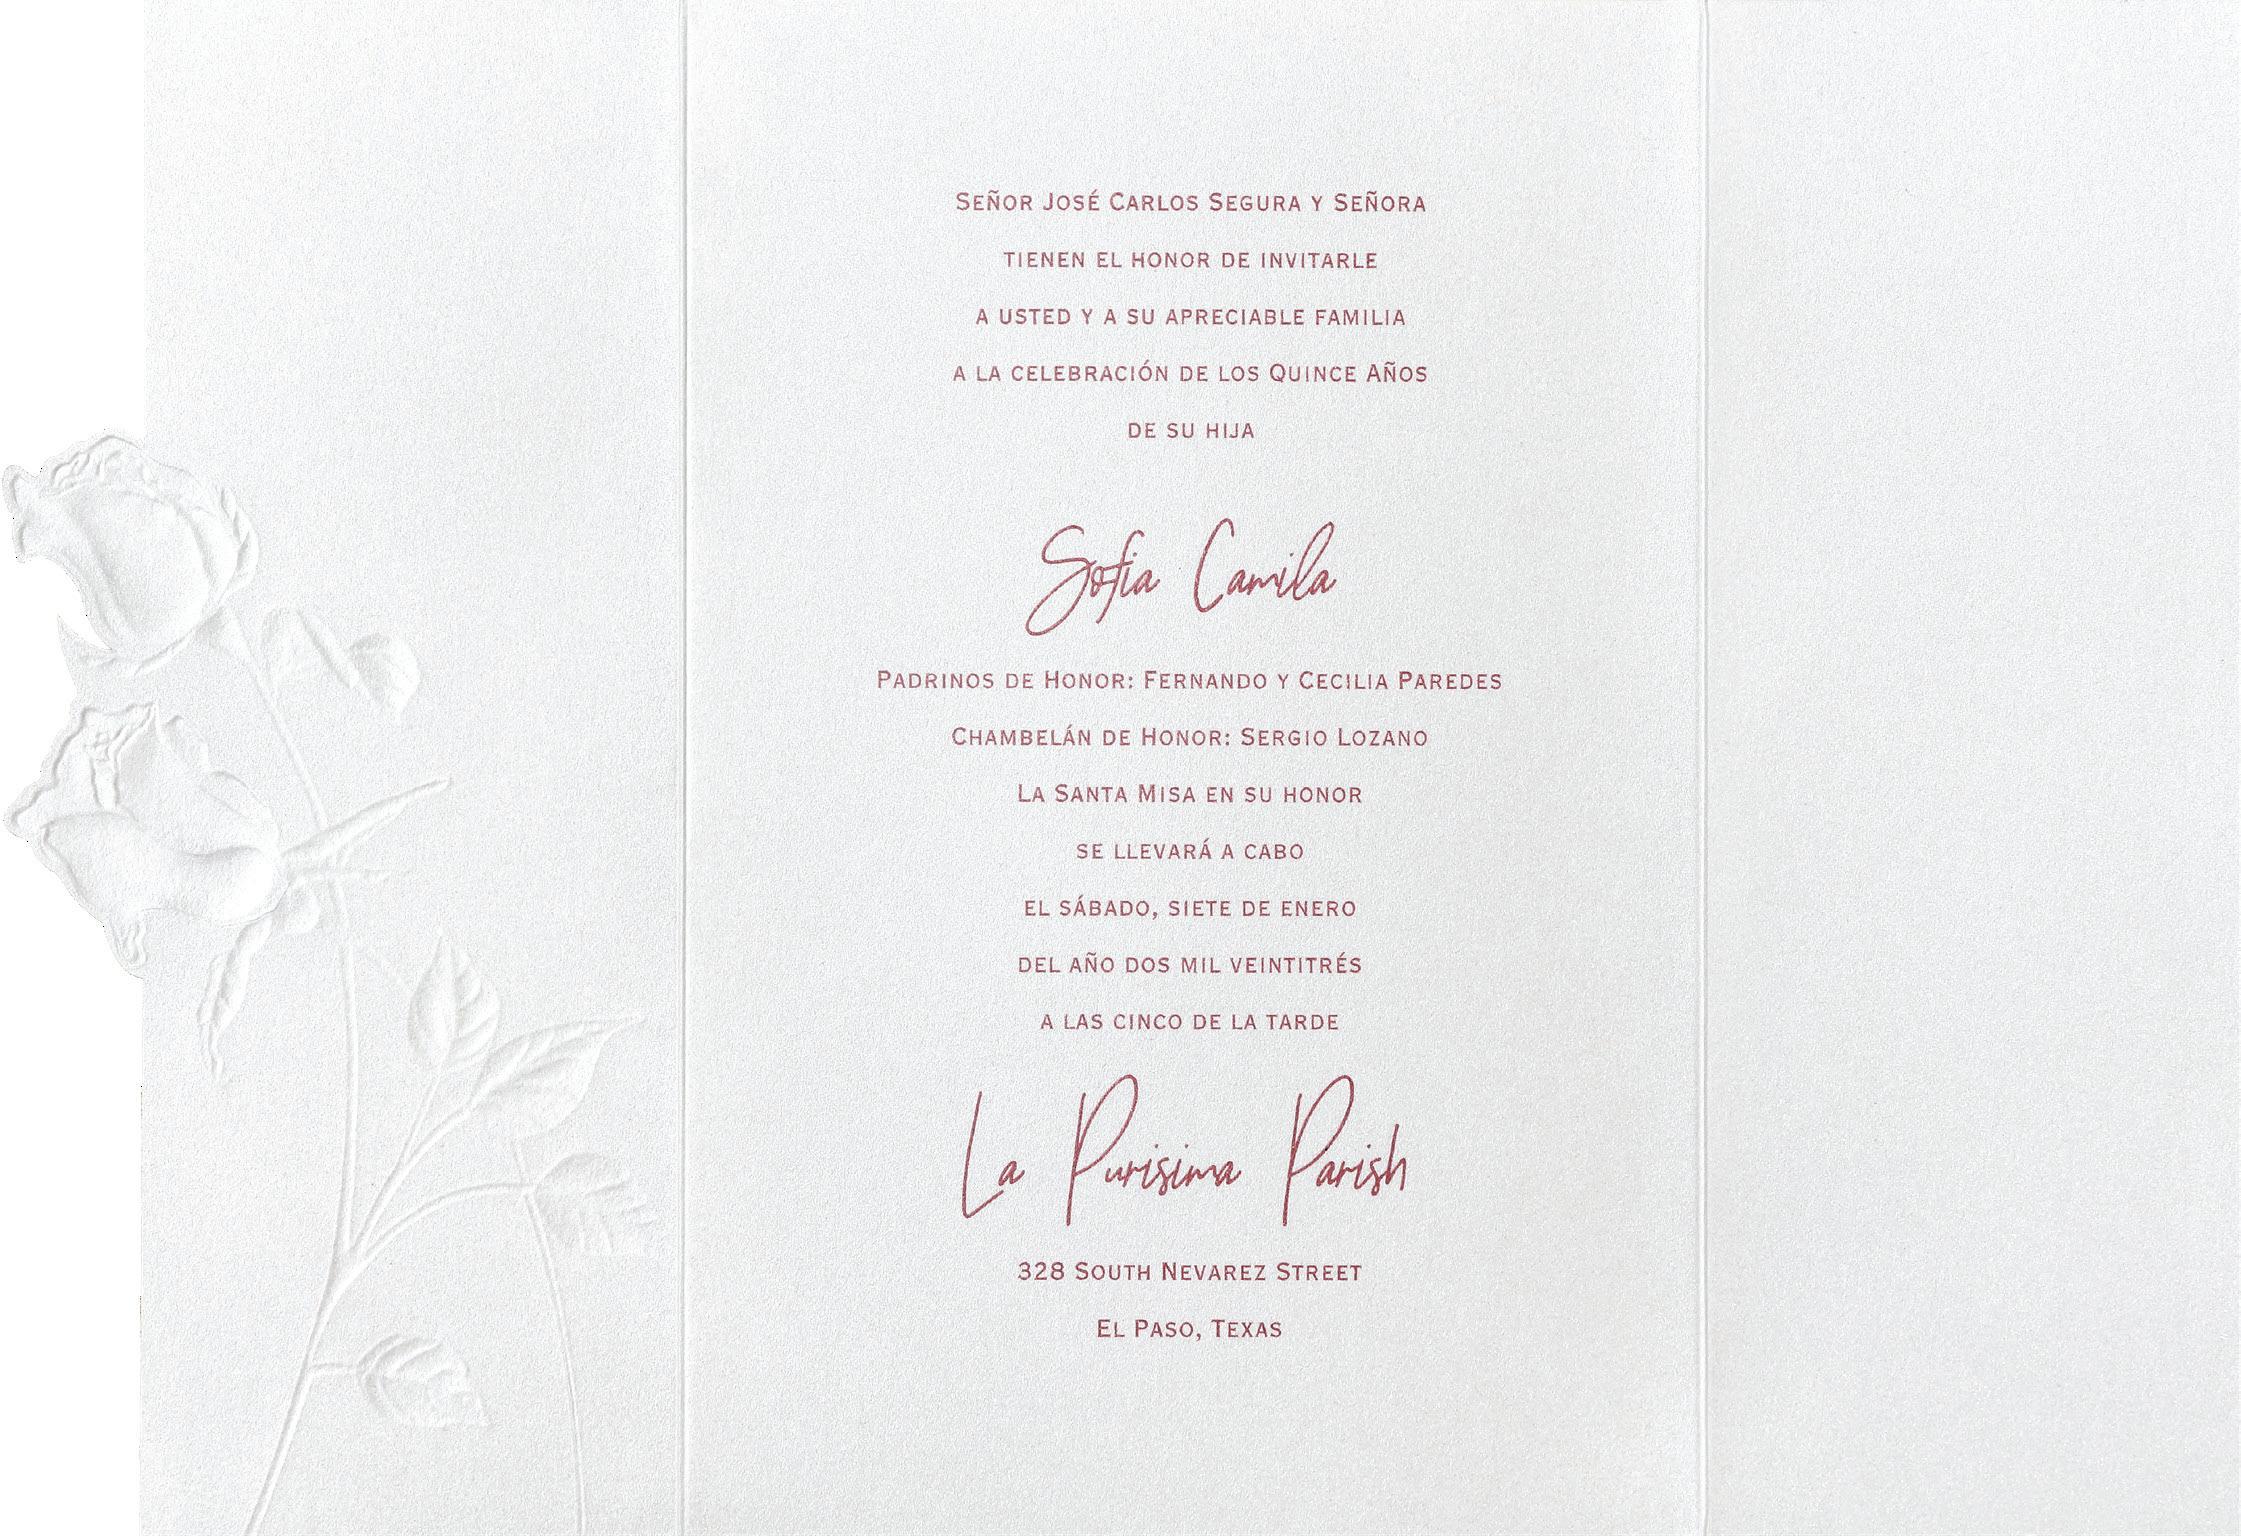 Señor José Carlos Segura y Señora
tienen el honor de invitarle
a usted y a su apreciable familia
a la celebración de los Quince Años
de su hija
Sofia Camila
Padrinos de Honor: Fernando y Cecilia Paredes
Chambelán de Honor: Sergio Lozano
La Santa Misa en su honor
se llevará a cabo
el sábado, siete de enero
del año dos mil veintitrés
a las cinco de la tarde
La Purisima Parish
328 South Nevarez Street
El Paso, Texas